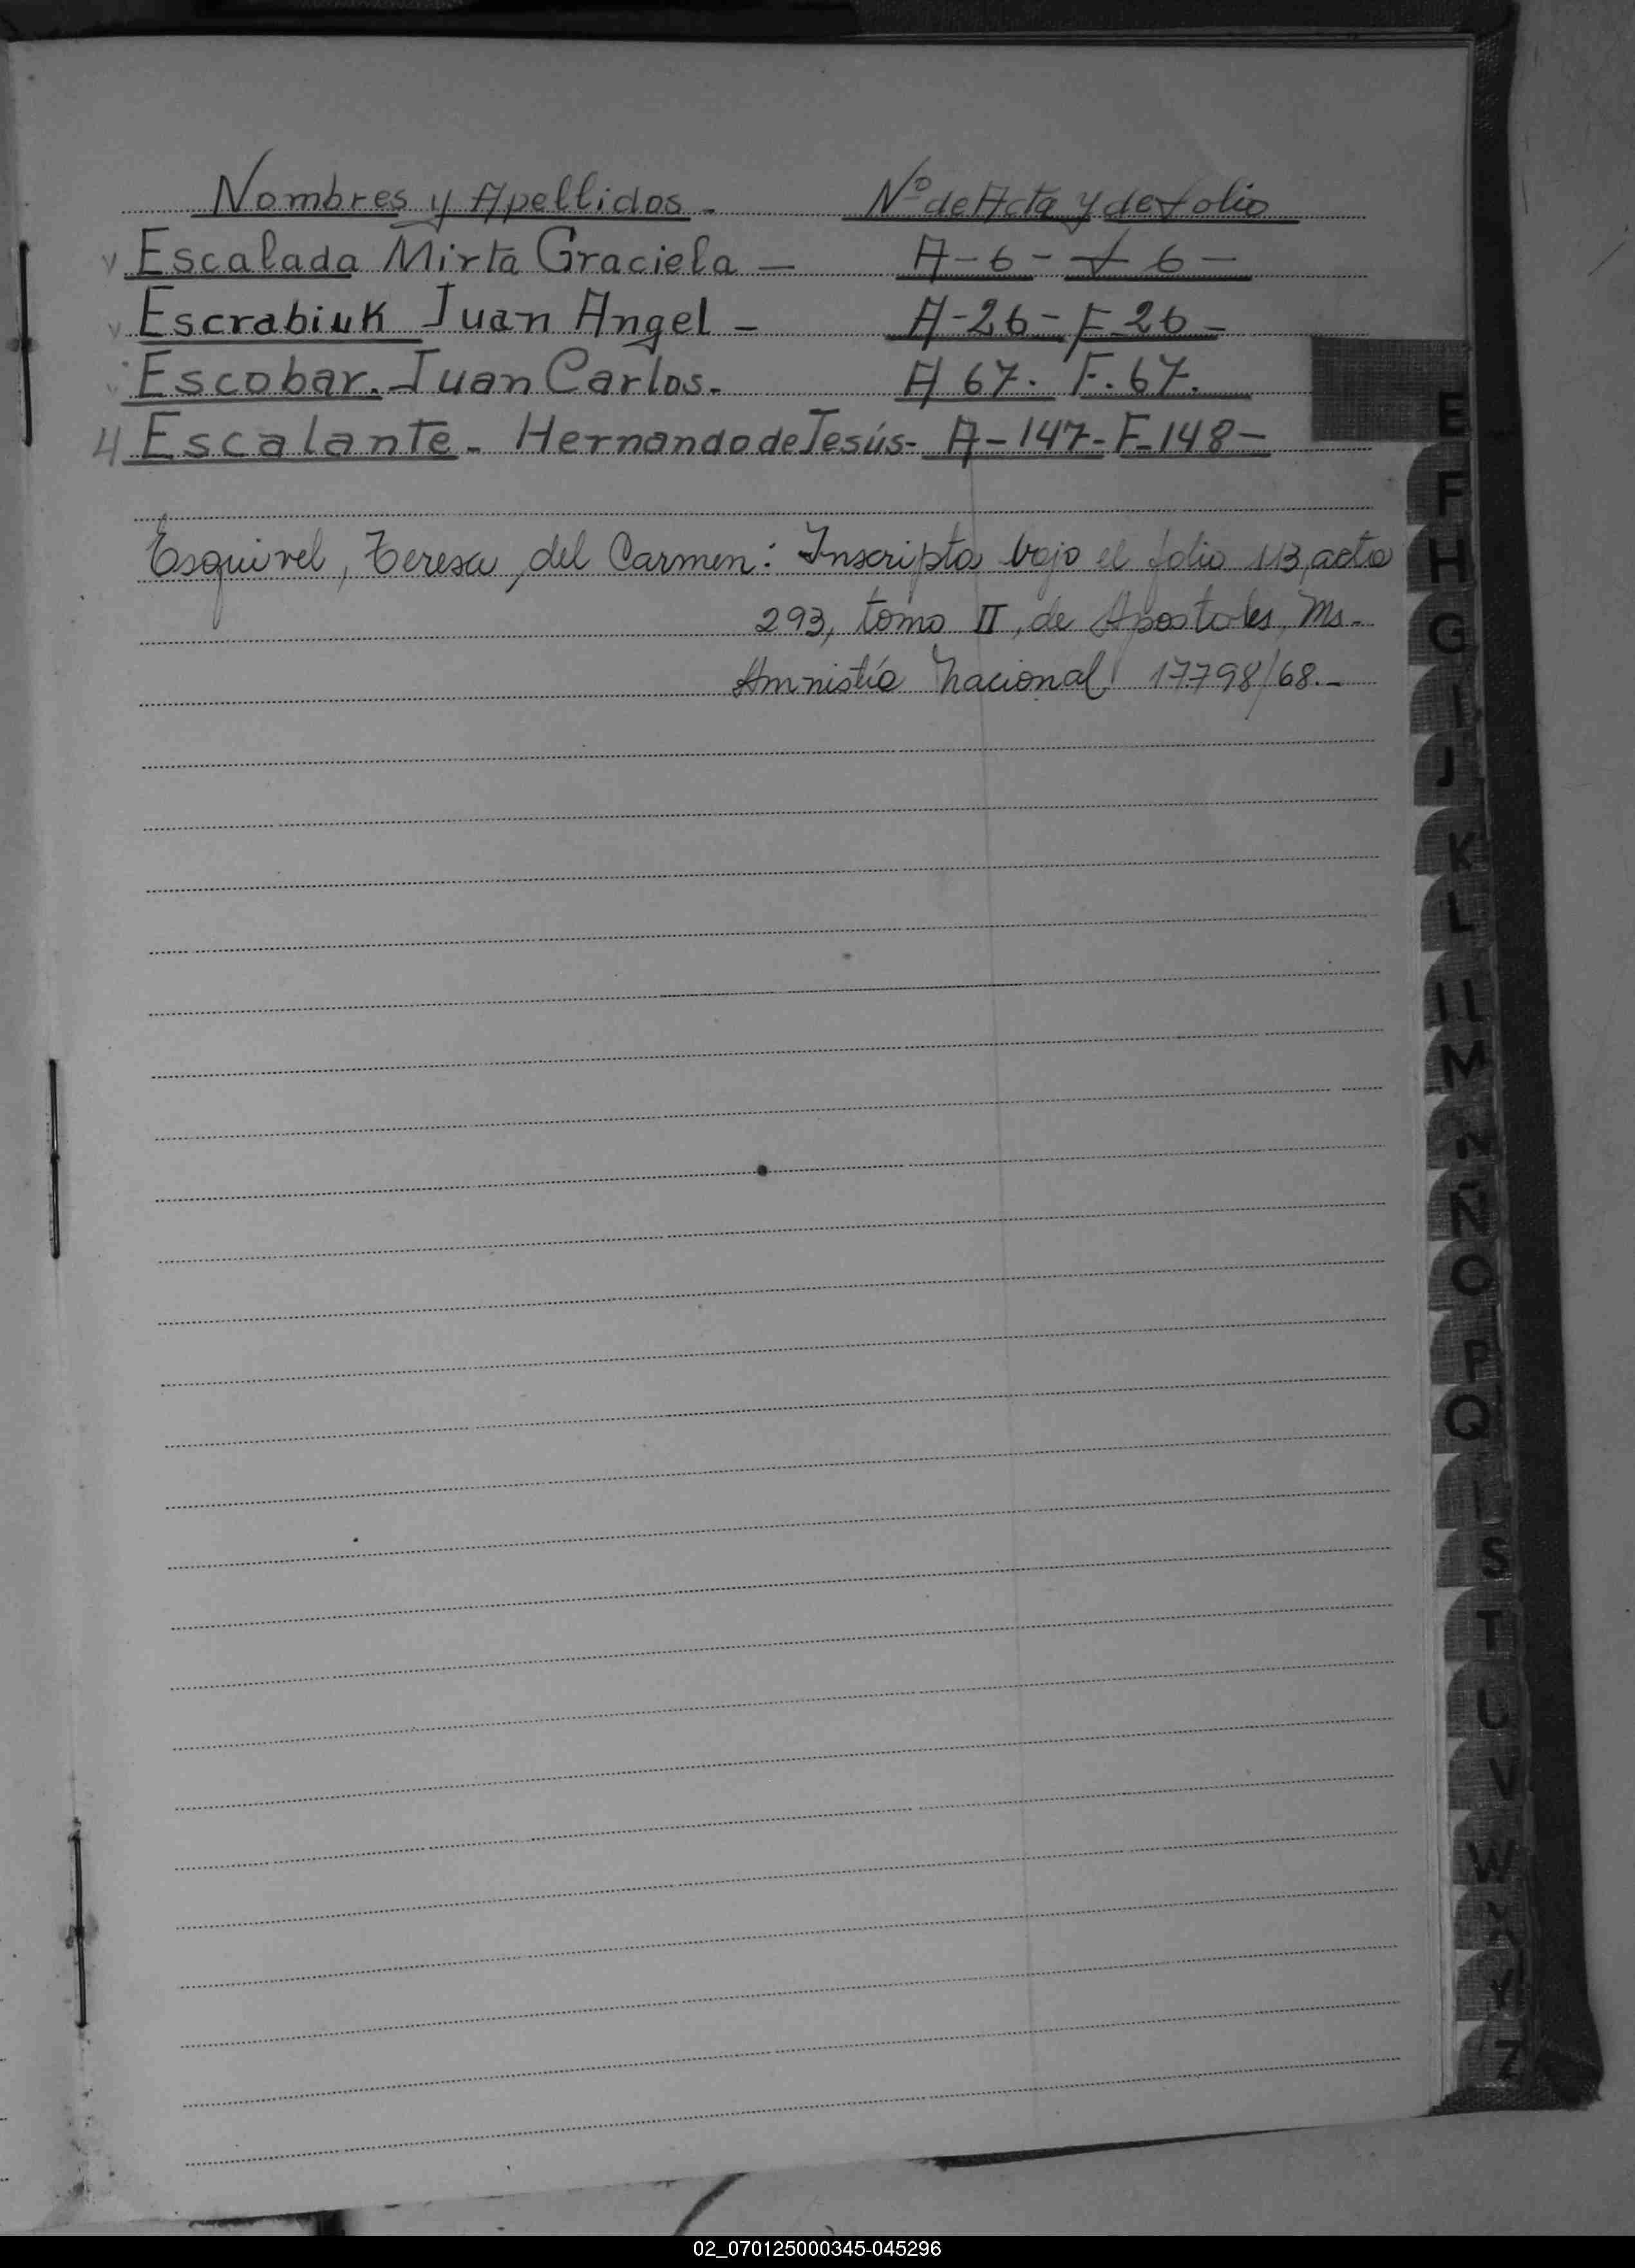 Nombres y Apellidos - Nº de Acta y de folio
v Escalada Mirta Graciela - A-6- f 6-
v Escrabiuk Juan Angel - A-26- F-26-
v Escobar. Juan Carlos. A 67. F. 67.
4 Escalante - Hernando de Jesús - A-147- F-148-
Esquivel, Teresa, del Carmen: Inscripta bajo el folio 113, acta
293, tomo II, de Apostoles, Ms.-
Amnistía Nacional 17.798/68.-
E
F
H
G
I
J
K
L
Ll
M
N
Ñ
O
P
Q
S
T
U
V
W
X
Y
Z
02_070125000345-045296